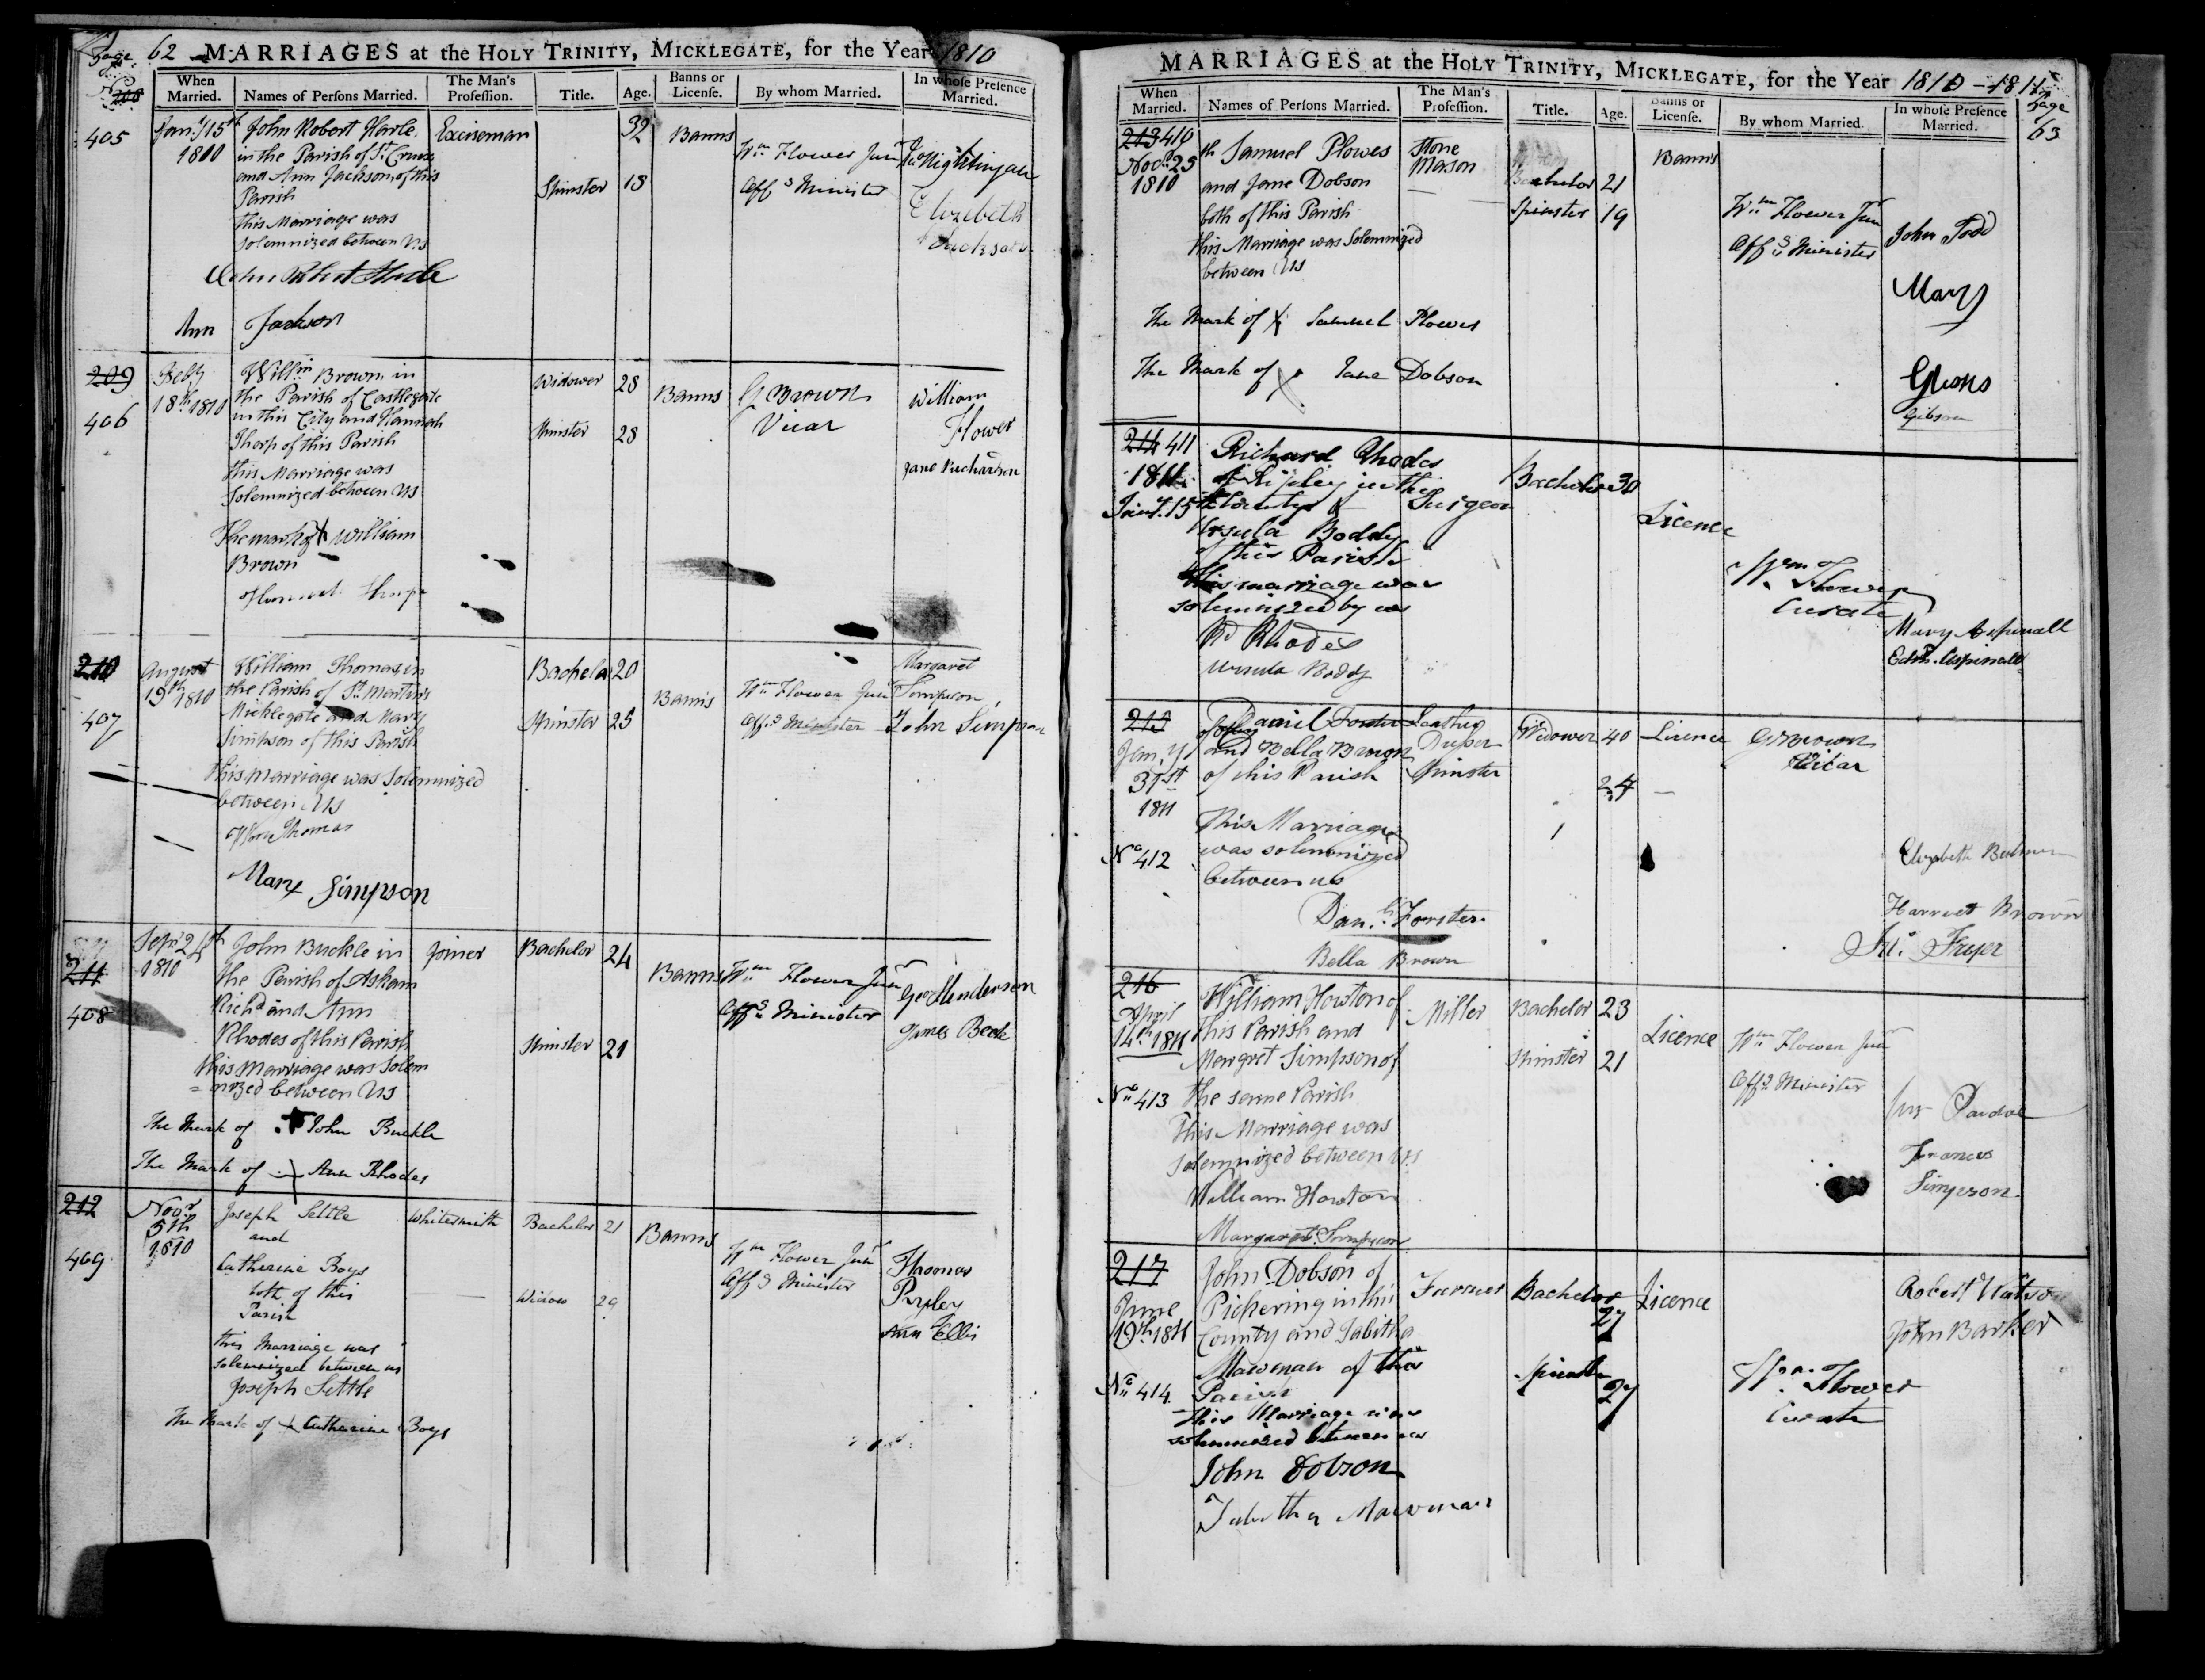 Page 62 MARRIAGES at the HOLY TRINITY, MICKLEGATE, for the Year 1810
When Married. Names of Perſons Married. The Man's Profeſſion. Title. Age. Banns or Licenſe. By whom Married. In whoſe Preſence Married.
No 208
405
Jany 15th
1810
John Robert Harle
in the Parish of St Crux
and Ann Jackson of this
Parish
this Marriage was
Solemnized between Us
Exciseman
32
Spinster 18
Banns
Wm Flower Junr
Offg Minister
Nightingale
Elizebeth
Jackson
John Robert Harle
Ann Jackson
209
406
Feby
18th 1810
Willm Brown in
the Parish of Castlegate
in this City and Hannah
Thorp of this Parish
this Marriage was
Solemnized between Us
Widower 28
Spinster 28
Banns
G Brown
Vicar
William
Flower
Jane Richardson
The mark of X William
Brown
Hannah Thorp
210
407
August
19th 1810
William Thomas in
the Parish of St Martin's
Micklegate and Mary
Simpson of this Parish
this Marriage was Solemnized
between Us
Bachelor 20
Spinster 25
Banns
Wm Flower Junr
Offg Minister
Margaret
Simpson
John Simpson
Wm Thomas
Mary Simpson
211
408
Sepr 24th
1810
John Buckle in
the Parish of Askam
Richd and Ann
Rhodes of this Parish
this Marriage was Solem
= nized between Us
Joiner
Bachelor 24
Spinster 21
Banns
Wm Flower Junr
Offg Minister
Geo Henderson
James Beck
The Mark of + John Buckle
The Mark of X Ann Rhodes
212
409
Novr
5th
1810
Joseph Settle
and
Catherine Boys
both of this
Parish
this Marriage was
solemnized between us
Whitesmith
Bachelor 21
Widow 29
Banns
Wm Flower Junr
Offg Minister
Thomas
Pryley
Ann Ellis
Joseph Settle
The Mark of X Catherine Boys
MARRIAGES at the HOLY TRINITY, MICKLEGATE, for the Year 1810 - 1811
Page 63
When Married. Names of Perſons Married. The Man's Profeſſion. Title. Age. Banns or Licenſe. By whom Married. In whoſe Preſence Married.
213 410
Novr 25th
1810
Samuel Plowes
and Jane Dobson
both of this Parish
this Marriage was Solemnized
between Us
Stone
Mason
Bachelor 21
Spinster 19
Banns
Wm Flower Junr
Offg Minister
John Todd
Mary
Gibson
The Mark of X Samuel Plowes
The Mark of X Jane Dobson
214 411
1811
Jany 15
Richard Rhodes
of Ripley in the
County &
Ursula Boddy
of this Parish
this marriage was
solemnized by us
Surgeon
Bachelor 30
Licence
Wm Flower
Curate
Mary Aspinall
Edm. Aspinall
Rd Rhodes
Ursula Boddy
215
Jany
31st
1811
No 412
Daniel Forster
of this Parish
and Bella Brown
of this Parish
This Marriage
was solemnized
between us
Leather
Dresser
Spinster
Widower 40
24
Licence
G Brown
Vicar
Elizabeth Bulmer
Harriet Brown
Jno Fryer
Danl Forster
Bella Brown
216
April
14th 1811
No 413
William Howton of
this Parish and
Margret Simpson of
the same Parish
This Marriage was
Solemnized between Us
Miller
Bachelor 23
Spinster 21
Licence
Wm Flower Junr
Offg Minister
Frances
Simpson
William Howton
Margaret Simpson
217
June
19th 1811
No 414
John Dobson of
Pickering in this
County and Tabitha
Mawman of this
Parish
this Marriage was
solemnized between us
Farmer
Bachelor
27
Spinster
27
Licence
Wm Flower
Curate
Robert Watson
John Barker
John Dobson
Tabitha Mawman